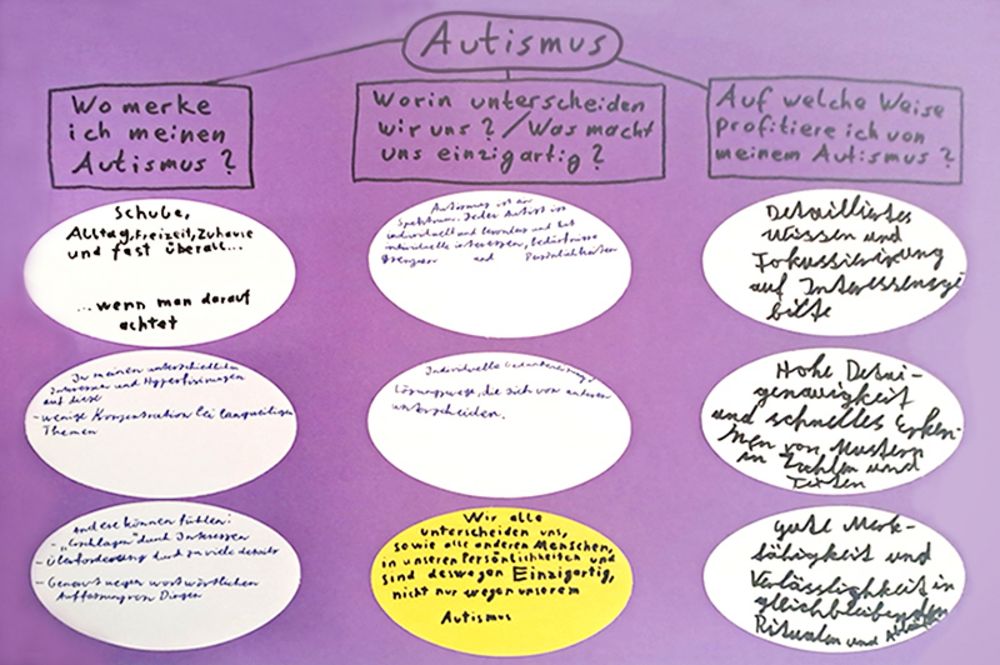 Autismus
Wo merke
ich meinen
Autismus?
Schule,
Alltag, Freizeit, Zuhause
und fast überall...
...wenn man darauf
achtet
In meinen unterschiedlichen
Interessen und Hyperfixierungen
auf diese
- wenige Konzentration bei langweiligen
Themen
Andere können fühlen:
- "Erschlagen" durch Interessen
- Überforderung durch zu viele details
- Genervt wegen wortwörtlichen
Auffassung von Dingen
Worin unterscheiden
wir uns? / Was macht
uns einzigartig?
Autismus ist ein
Spektrum. Jeder Autist ist
individuell und besonders und hat
individuelle interessen, bedürfnisse
Grenzen und Persönlichkeiten
Individuelle
Lösungswege, die sich von anderen
unterscheiden.
Wir alle
unterscheiden uns,
sowie alle anderen Menschen,
in unseren Persönlichkeiten und
sind deswegen Einzigartig,
nicht nur wegen unserem
Autismus
Auf welche Weise
profitiere ich von
meinem Autismus?
Detailliertes
Wissen und
Fokussierung
auf Interessensge
biete
Hohe Detai-
genauigkeit
und schnelles Erken-
nen von Mustern
in Zahlen und
Texten
gute Merk-
fähigkeit und
Verlässligkeit in
gleichbleibenden
Ritualen und